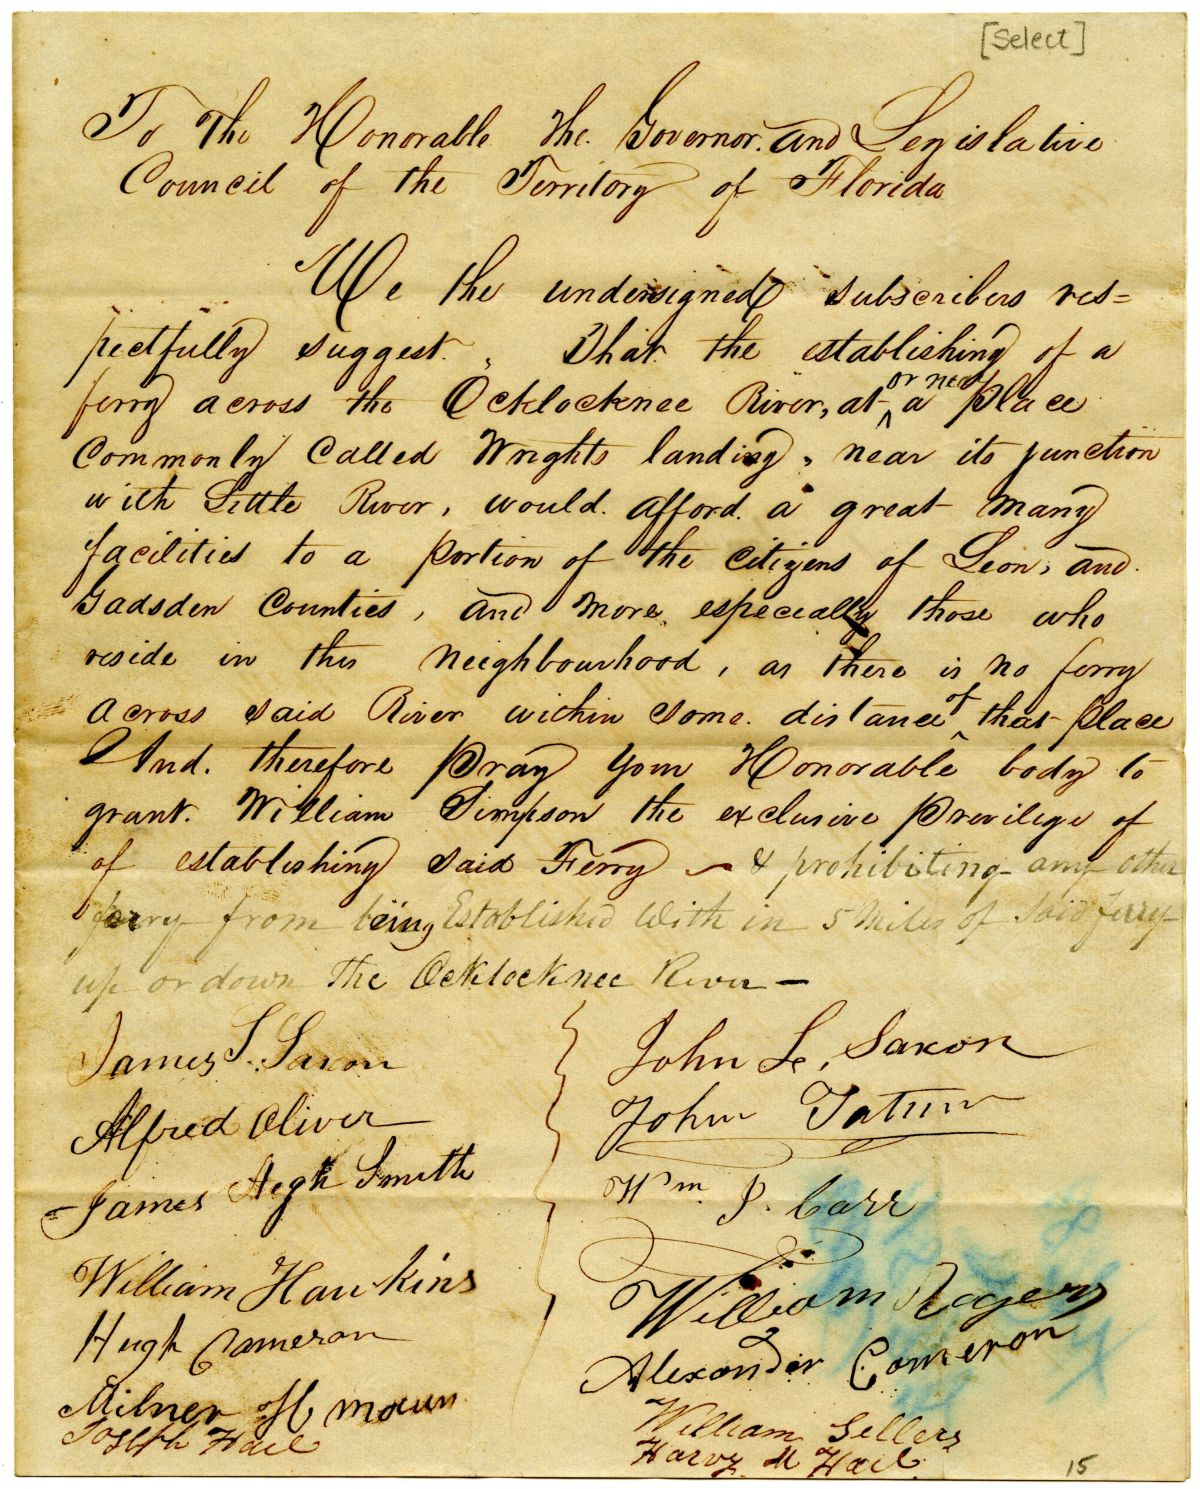 [Select]
To The Honorable the Governor. and Legislative
Council of the Territory of Florida
We the undersigned subscribers res=
pectfully suggest. That the establishing of a
or near
ferry across the Ocklocknee River, at ^ a place
commonly called Wrights landing, near its junction
with Little River, would. afford. a great many
facilities to a portion of the citizens of Leon, and.
Gadsden Counties, and more especially those who
reside in this neighbourhood, as there is no ferry
across said River within some distance ^ of that place
And. therefore pray your Honorable body to
grant. William Simpson the exclusive privilege of
of establishing said Ferry ~ & prohibiting any other
ferry from being Established With in 5 Miles of Said Ferry
up or down The Ocklocknee River —
James S. Saxon
Alfred Oliver
James Hegh Smith
William Hawkins
Hugh Cameron
Milner H
Joseph Hail
John L. Saxon
John Tatum
Wm. P. Carr
William Rogers
Alexander Cameron
William Sellers
Harvy M Hail
15